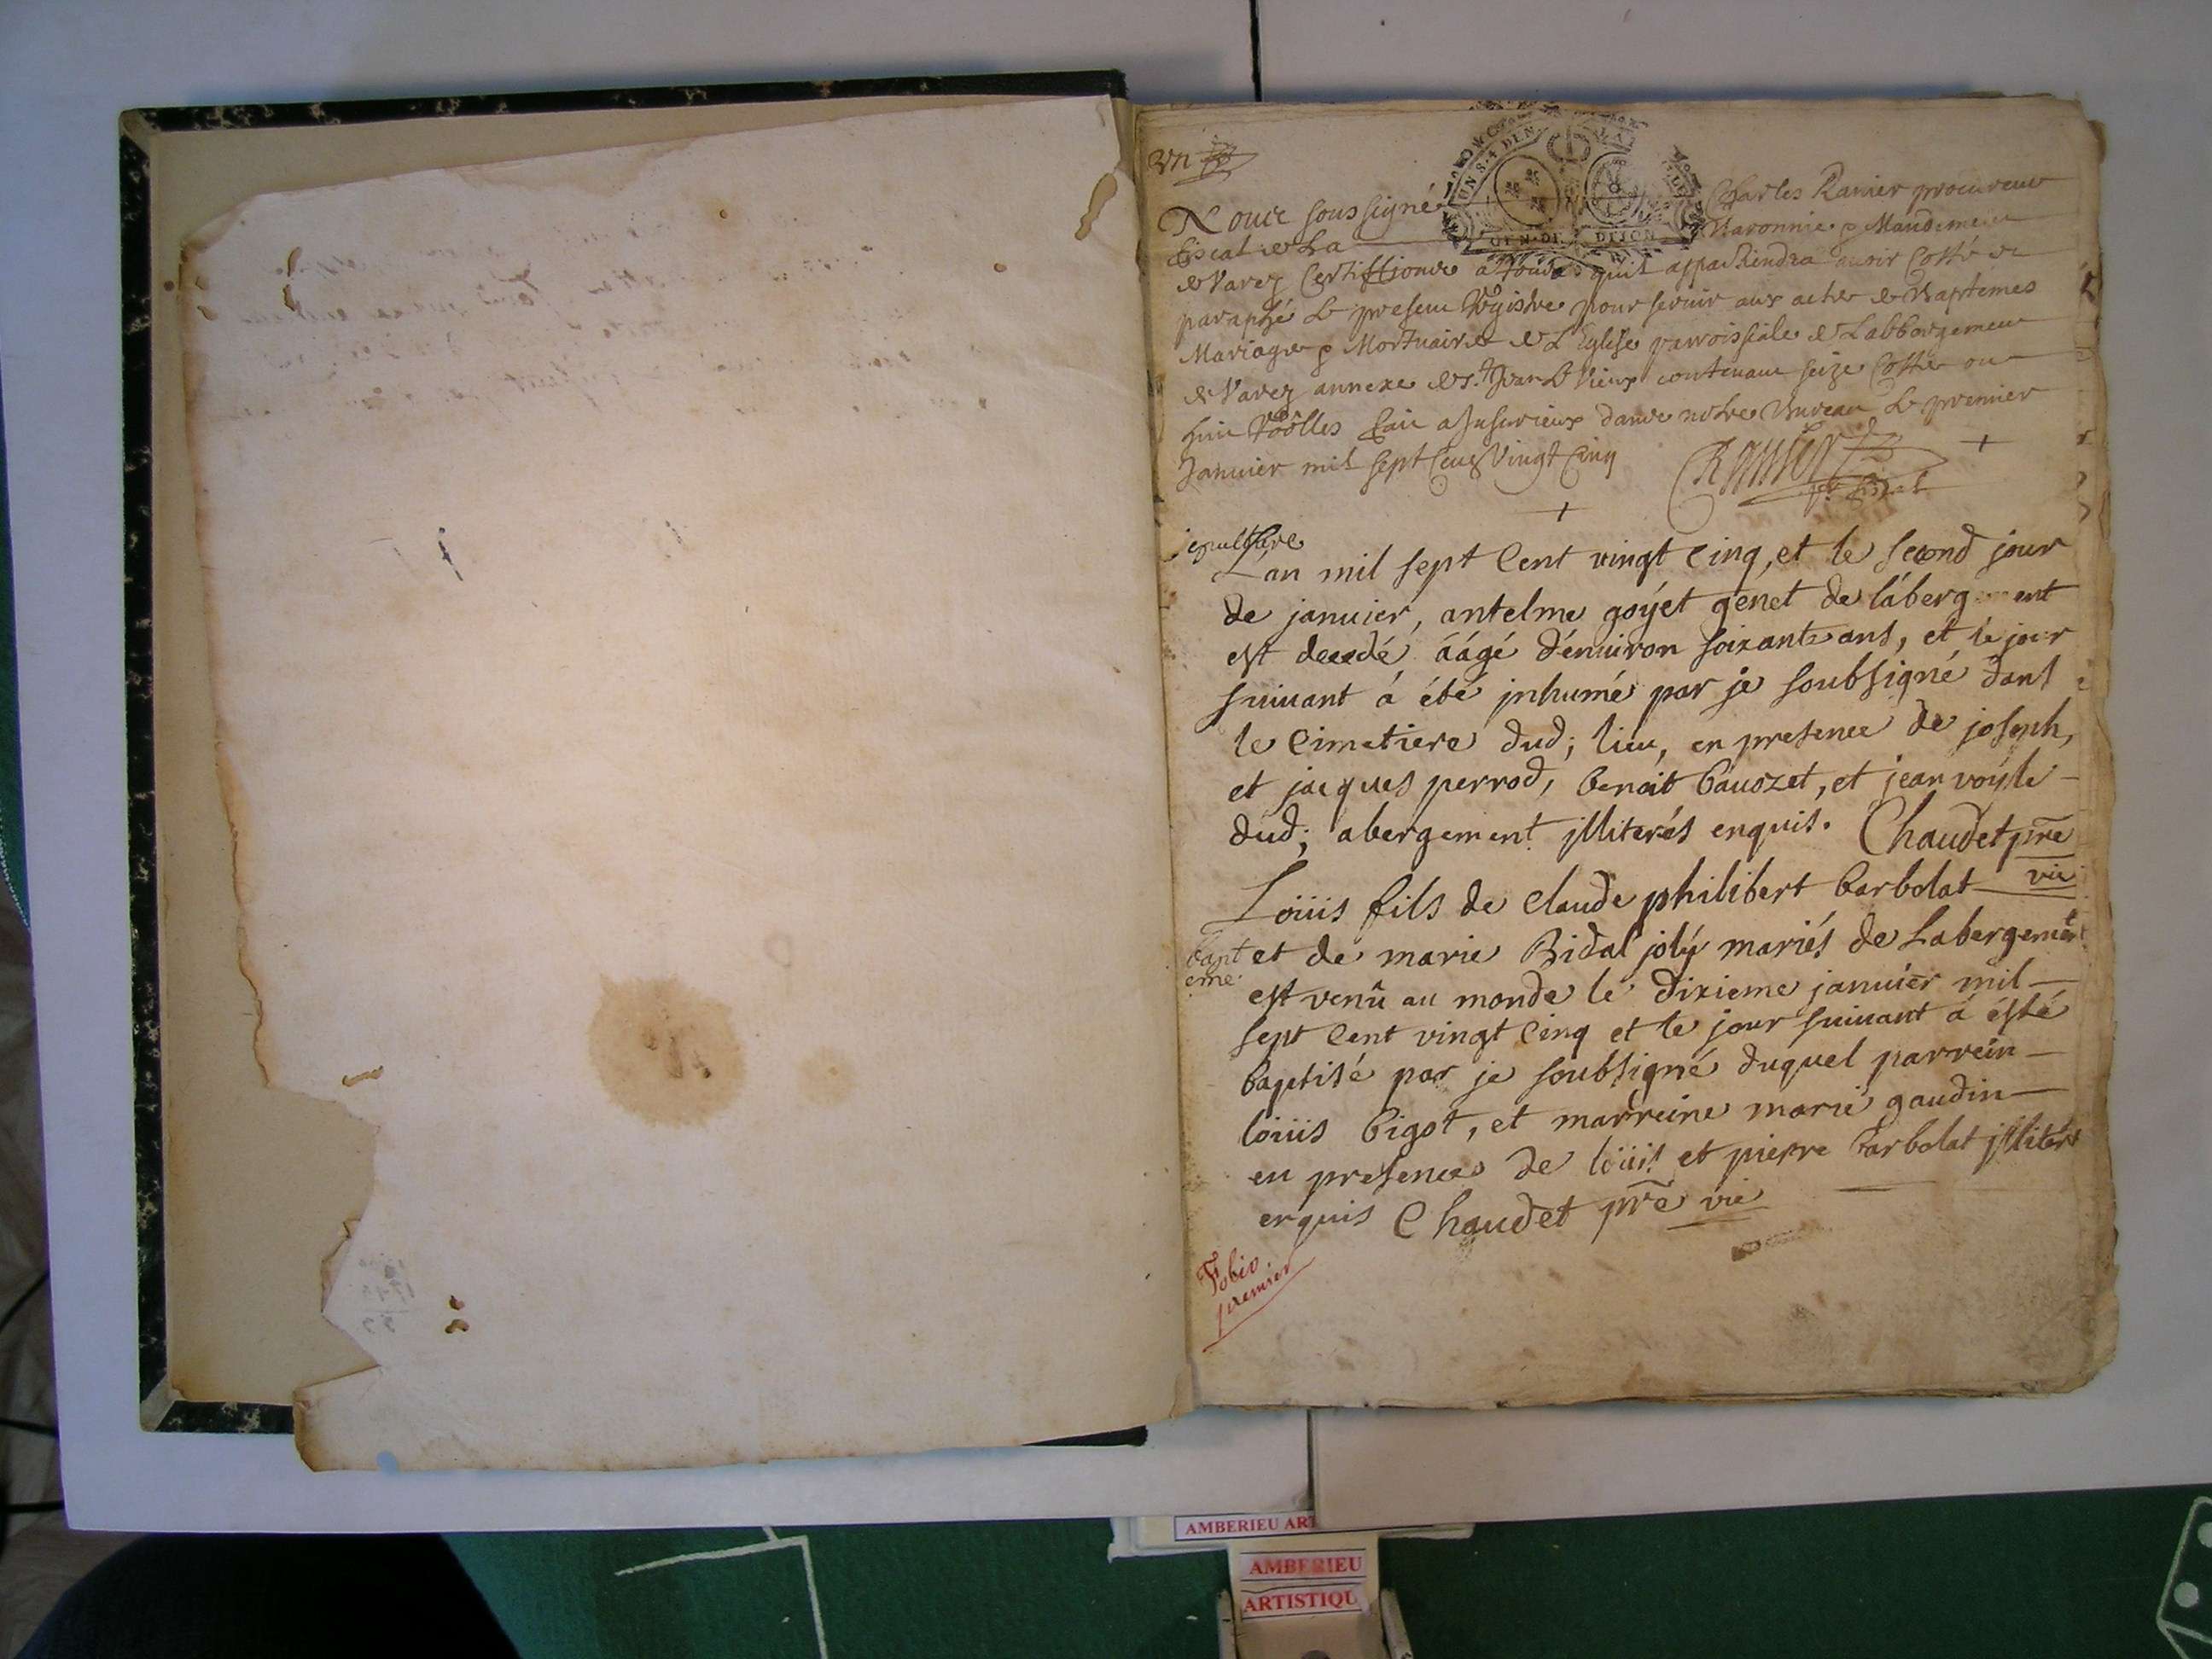 vn
UN S. 4 DEN.
GEN. DE DIJON
Nous soussigné Charles Ranier procureur
fiscal de la Baronnie & Mandement
de Varey Certiffions a tous quil appartiendra auoir Cotté et
paraphé le present Registre pour seruir aux actes de Baptemes
Mariages & Mortuaires de L'Eglise parroissiale de Labbergement
de Varey annexe de St. Jean le Vieux contenant seize Cottes ou
huit Roolles fait a Jusurieux dans notre Bureau le premier
Januier mil sept Cens Vingt Cinq
Ranier
pr fiscal
sepulthure
Lan mil sept Cent vingt Cinq, et le second jour
de januier, antelme goÿet genet de láberg ent
est decedé áágé dénuiron soixante ans, et le jour
suiuant á été jnhumé par je soubsigné dans
le Cimetiere dud; lieu, en presence de joseph,
et jacques perrod, benoit bauozet, et jean voÿle
dud; abergement jlliterés enquis. Chaudet pre
vic
Loüis fils de Claude philibert barbolat
bapt
eme
et de marie Bidal jolÿ mariés de Labergemt
est venû au monde le dixieme januier mil
sept Cent vingt Cinq et le jour suiuant á ésté
baptisé par je soubsigné duquel parrein
loüis bigot, et marreine marie gaudin
en presences de loüis et pierre barbolat jlliterés
enquis Chaudet pre vic
Folio
premier
AMBERIEU ART
AMBERIEU
ARTISTIQU